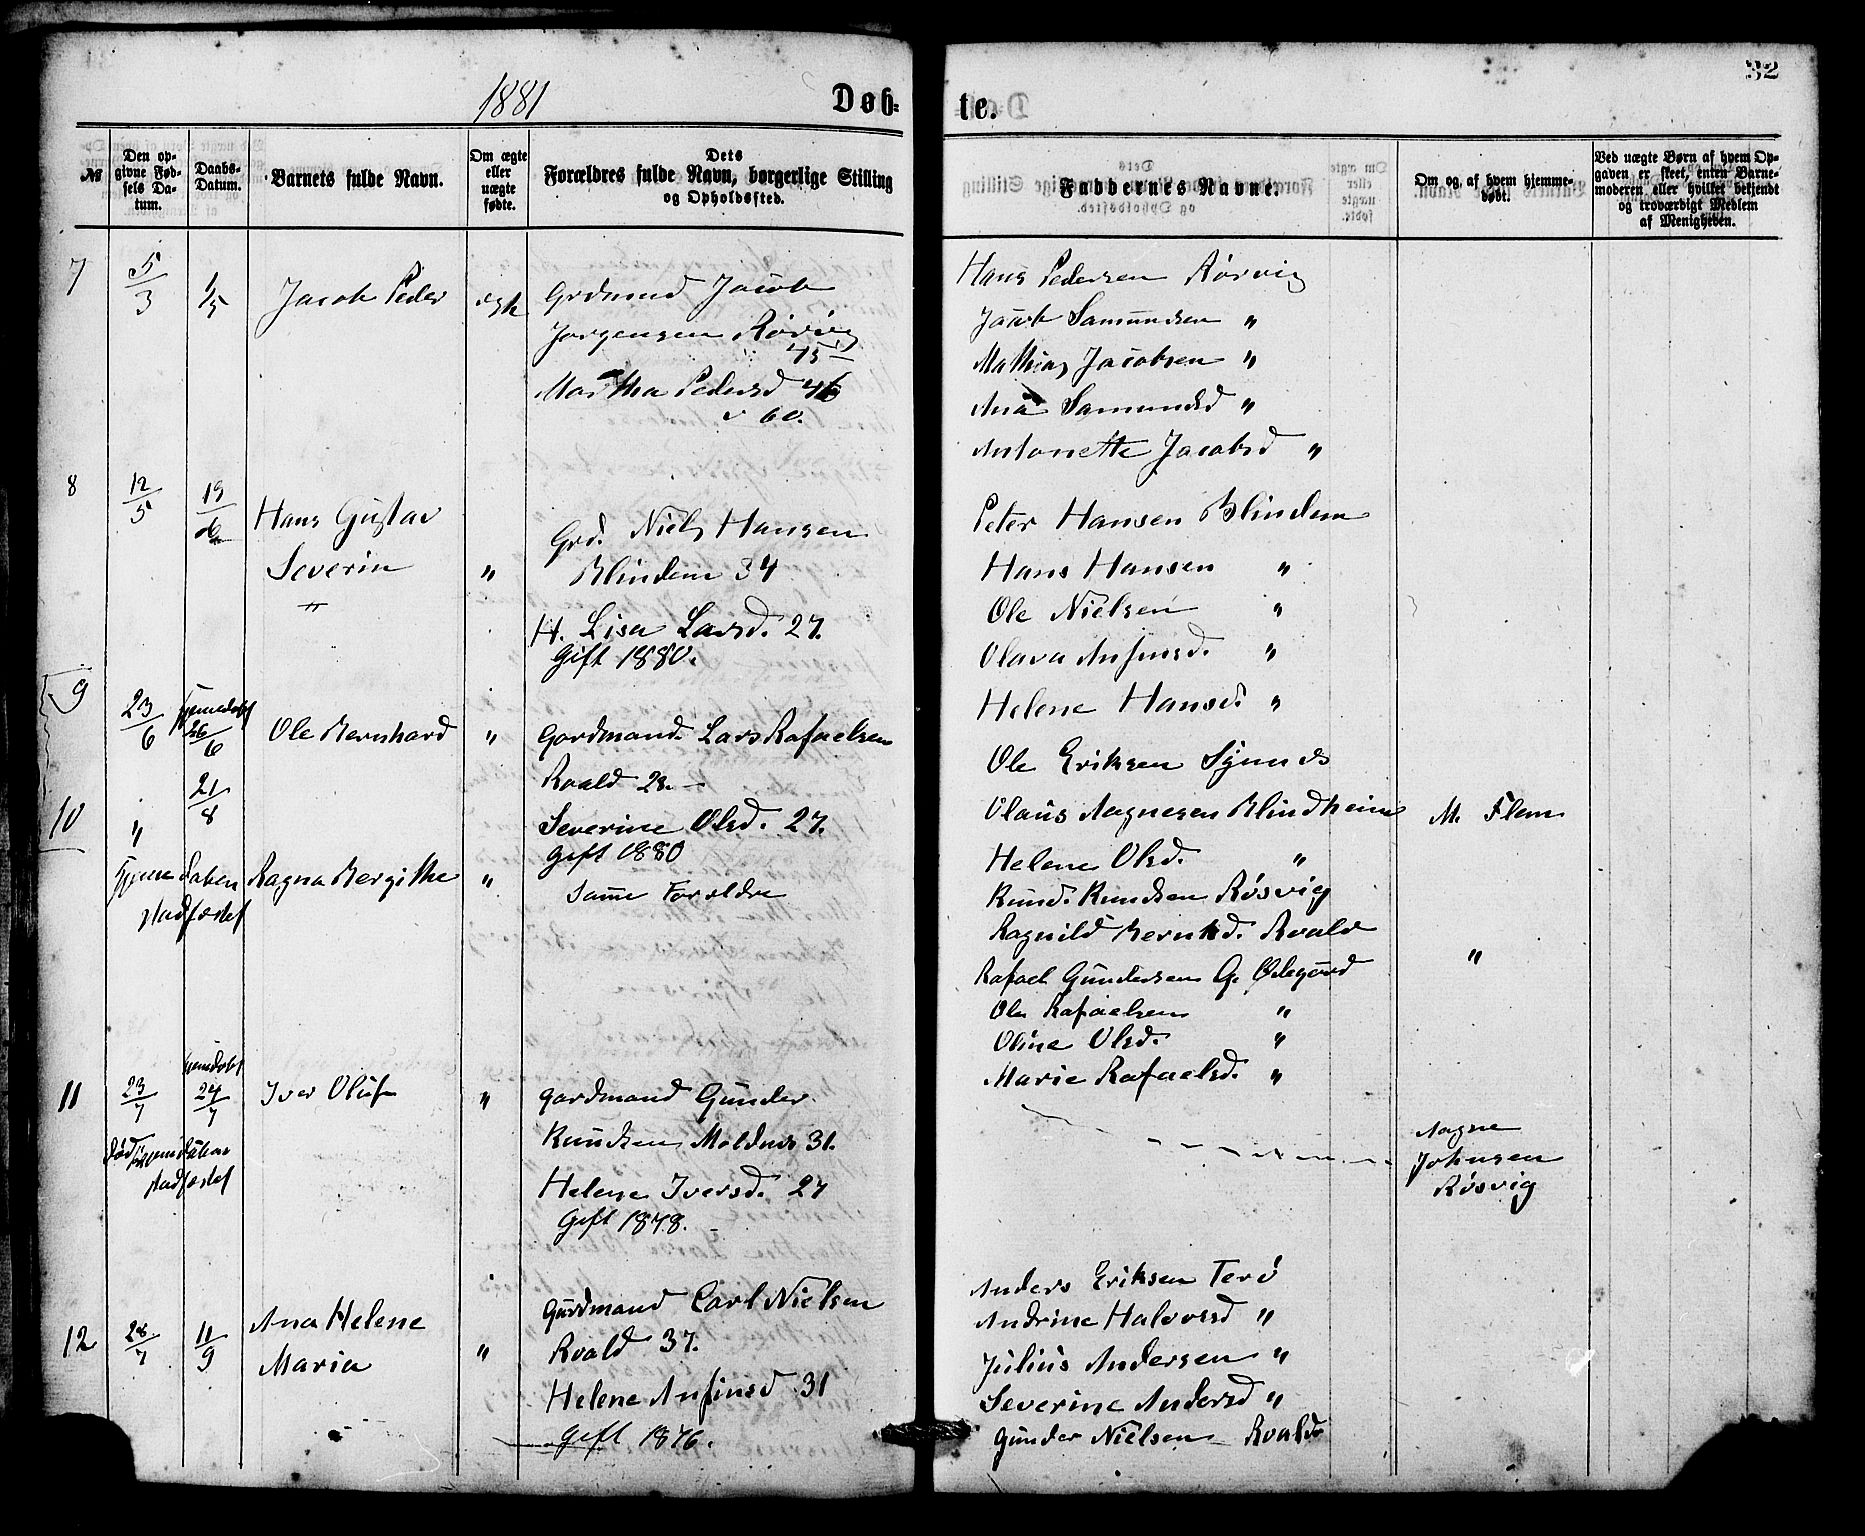 32
1881
Døb-
te.
№
Den op-
givne Fød-
sels Da-
tum.
Daabs-
Datum.
Barnets fulde Navn.
Om ægte
eller
uægte
fødte.
Dets
Forældres fulde Navn, borgerlige Stilling
og Opholdssted.
Faddernes Navne.
Om og af hvem hjemme-
døbt.
Ved uægte Børn af hvem Op-
gaven er skeet, enten Barne-
moderen eller hvilket bekjendt
og troværdigt Medlem
af Menigheden.
7
5/3
1/5
Jacob Peder
ægte
Grdmand Jacob
Jørgensen Røsvig
45
Martha Pedersd 46
60.
Hans Pedersen Røsvig
Jacob Samundsen "
Mathias Jacobsen "
Ana Samundsd "
Antonette Jacobsd "
8
12/5
19/6
Hans Gustav
Severin
"
Grd. Niels Hansen
Blindem 34
H. Lisa Larsd. 27.
Gift 1880.
Peter Hansen Blindem
Hans Hansen "
Ole Nielsen "
Olava Anfinsd. "
Helene Hansd. "
9
23/6
hjemedøbt
26/6
21/8
Ole Bernhard
"
Gardmand. Lars Rafaelsen
Roald 28.
Severine Olsd. 27.
Gift 1880
Ole Eriksen Synnes
Olaus Aagnesen Blindheim
M. Flem
Helene Olsd. "
Knud. Knudsen Røsvig
Ragnild Berntsd. Roald
10
"
Hjemedaaben
stadfæstet
Ragna Bergithe
"
Samme Forældre
Rafael Gundersen G. Ødegård
"
Ole Rafaelsen "
Oline Olsd. "
Marie Rafaelsd. "
11
23/7
hjemdøbt
24/7
Iver Oluf
"
gardmand Gunder
Knudsen Moldnes 31.
Helene Iversd. 27
Gift 1878.
død
stadfæstet
Aagne
Johnsen
Røsvig
12
28/7
11/9
Ana Helene
Maria
"
Gardmand Carl Nielsen
Roald 37.
Helene Anfinsd 31
Gift 1876.
Anders Eriksen Terø
Andrine Halvorsd "
Julius Andersen "
Severine Andersd "
Gunder Nielsen Roald